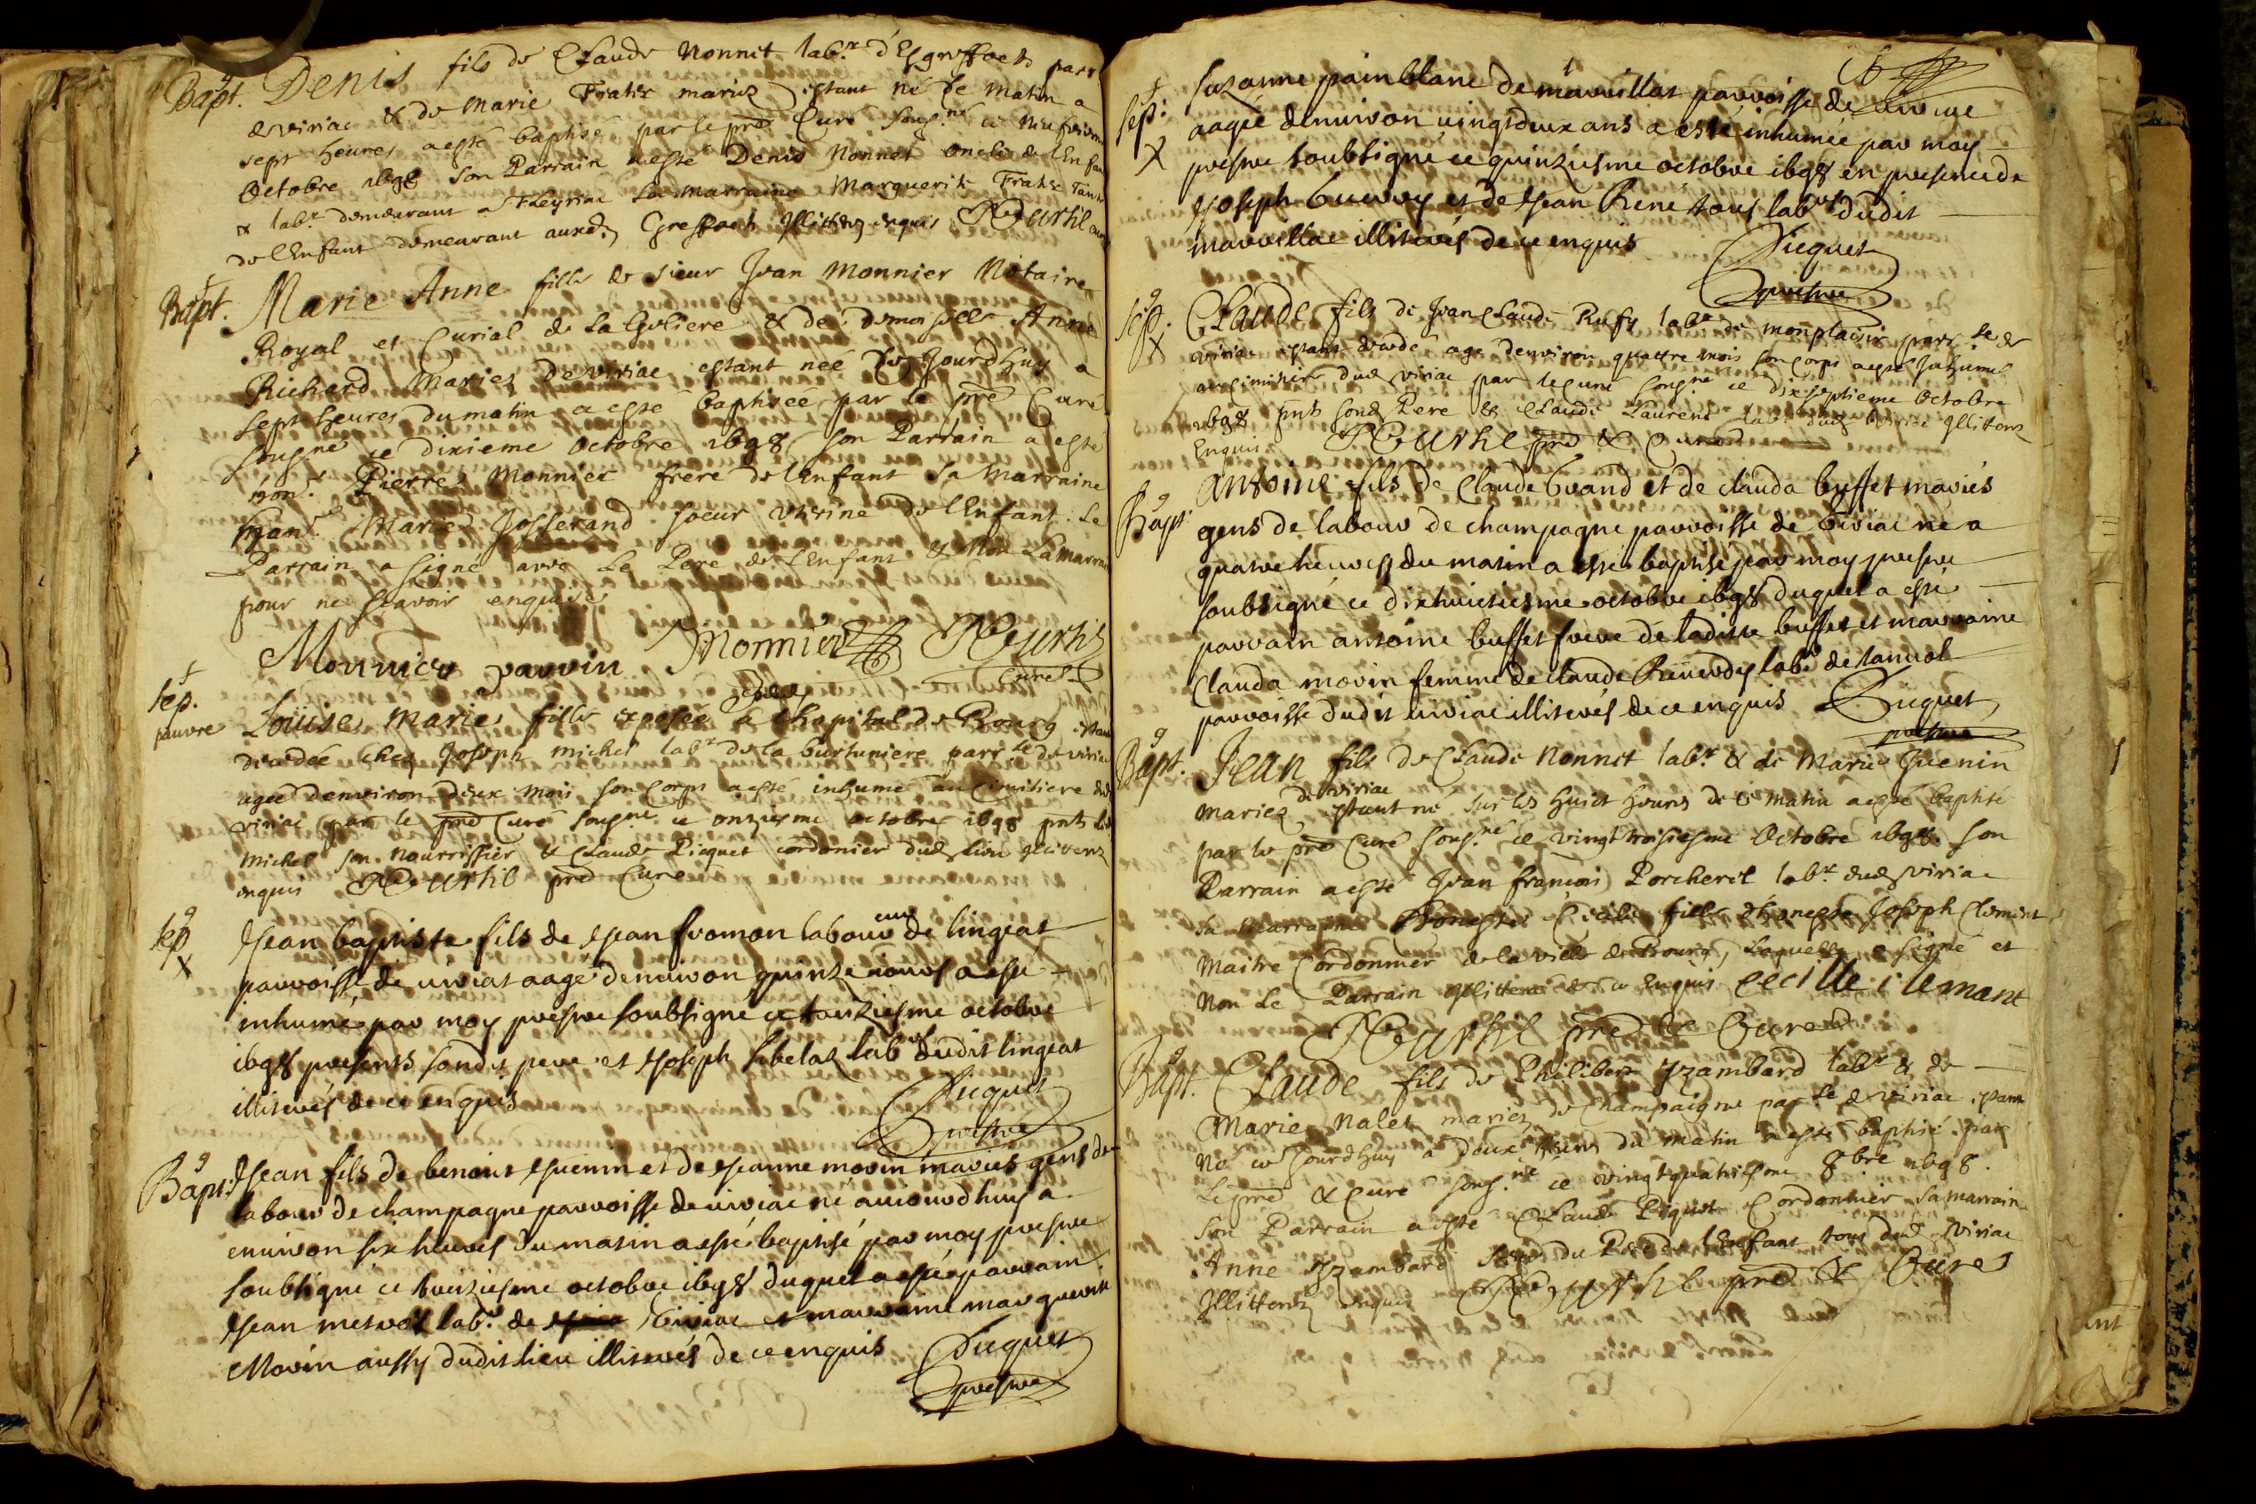 Bapt. Denis fils de Claude Nonnet lab.r d'Esgreffoets parr
de viriac & de Marie Frater mariez estant né le matin a
sept heures a esté baptisé par le pre Curé sousg.né ce neufvieme
Octobre 1698 son Parrain a esté Denis Nonnet oncle de l'Enfant
& lab.r demeurant a Fleyriac La marraine Marguerite Frater tante
de l'Enfant demeurant auxd. Greffoets Illitterez enquis Deurtil curé
Bapt. Marie Anne fille de sieur Jean Monnier Notaire
Royal et Curial de la & de demoiselle Anne
Richard Mariez de viriac estant neé ce Jourdhuy a
sept heures du matin a esté baptisée par le pre Curé
sousgné ce dixieme octobre 1698 son Parrain a esté
Pierre Monnier frere de l'Enfant La Marraine
Marie Josserand soeur uterine de l'Enfant. Le
Parrain a signé avec Le Pere de l'Enfant & Non La marraine
pour ne scavoir enquise
Monnier parrin Monnier Deurtil
Curé
Sep. pauvre Louise Marie fille exposée a Lhopital de Bourg estant
decedée chez Joseph michel lab.r de la parr.sse de viriac
agée denviron deux mois son Corps a esté inhumé au Cimitiere dud
viriac par le pre Curé sousgné ce onziesme octobre 1698 pnts led
michel son nourrissier & Claude Picquet cordonier dud lieu
enquis Deurtil pre Curé
Sep Jean baptiste fils de Jean fromon laboureur de lingeat
parroisse de uiriat aagé denuiron quinze iours a esté
inhumé par moy prestre soubsigné ce treiziesme octobre
1698 presents sondit pere et Joseph sibelas lab.rs dudit lingeat
illiterés de ce enquis Picquet
prestre
Bapt. Jean fils de benoist Guenin et de Jeanne morin mariés gens de
labour de champagne parroisse de uiriac né auiourdhuy a
enuiron six heures du matin a esté baptisé par moy prestre
soubsigné ce treiziesme octobre 1698 duquel a esté parrain
Jean lab.r de uiriac et marraine marguerite
Morin aussy dudit lieu illiterés de ce enquis Picquet
prestre
Sep. Suzanne painblanc de mauuillat parroisse de
aagée denuiron uingtdeux ans a esté inhumée par moy
prestre soubsigné ce quinziesme octobre 1698 en presence de
Joseph et de Jean René tous lab.rs dudit
illiterés de ce enquis Picquet
prestre
Sep. Claude fils de Jean Claude Rufy lab.r de monplaisir parr.sse de
viriac estant decedé agé denviron quattre mois son corps a esté Inhumé
au cimitiere dud viriac par le curé sousgné ce dixseptieme Octobre
1698 pnts sond Pere & Claude Laurent lab.r dud viriac Illiterez
Enquis Deurtil pre & Curé
Bapt. Antoine fils de Claude Grand et de clauda buffet mariés
gens de labour de champagne parroisse de uiriac né a
quatre heures du matin a esté baptisé par moy prestre
soubsigné ce dixhuictiesme octobre 1698 duquel a esté
parrain antoine buffet frere de laditte buffet et marraine
Clauda morin femme de claude lab.r de
parroisse dudit uiriac illiterés de ce enquis Picquet
prestre
Bapt. Jean fils de Claude Nonnet lab.r & de Marie Guenin
Mariez de viriac estant né sur les huict heures de ce matin a esté baptisé
par le pre Curé sousg.né ce vingttroisiesme Octobre 1698. son
Parrain a esté Jean françois Porcheret lab.r dud viriac
La Marraine Honeste Cecile fille d'honeste Joseph Clement
Maitre Cordonnier de la ville de Bourg, Laquelle a signé et
Non Le Parrain Illitteré de ce Enquis cecille clemant
Deurtil pre & Curé
Bapt. Claude fils de Philibert Yzambard lab.r & de
Marie Nalet mariez de Champaigne par.sse de viriac, estant
Né ce Jourdhuy a deux heures du matin a esté baptisé par
Le pre & Curé sousg.né ce vingtquatriesme 8.bre 1698.
Son Parrain a esté Claude Piquet Cordonnier Sa marraine
Anne Yzambard soeur du Pere de l'Enfant tous dud viriac
Illitterez enquis Deurtil pre & Curé